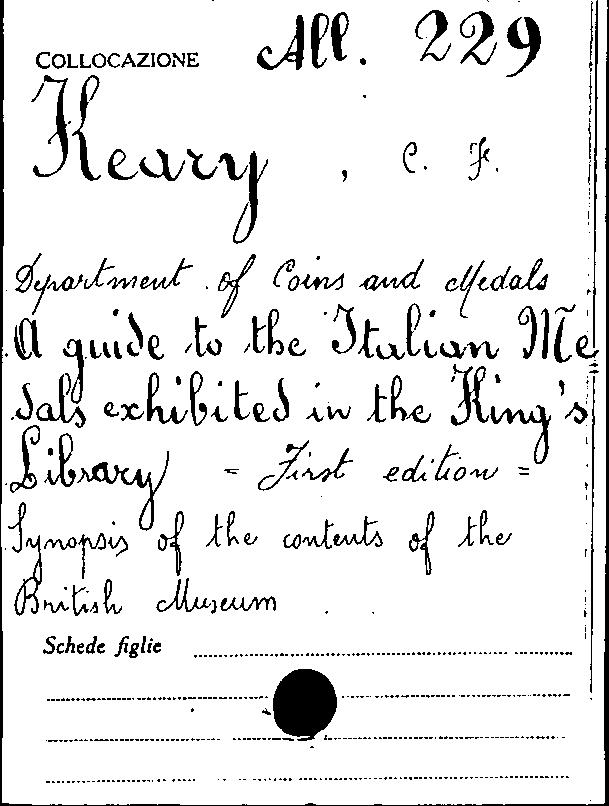 COLLOCAZIONE All. 229
Keary , C. F.
Department of Coins and Medals
A guide to the Italian Me
dals exhibited in the King's
Library = First edition =
Synopsis of the contents of the
British Museum
Schede figlie